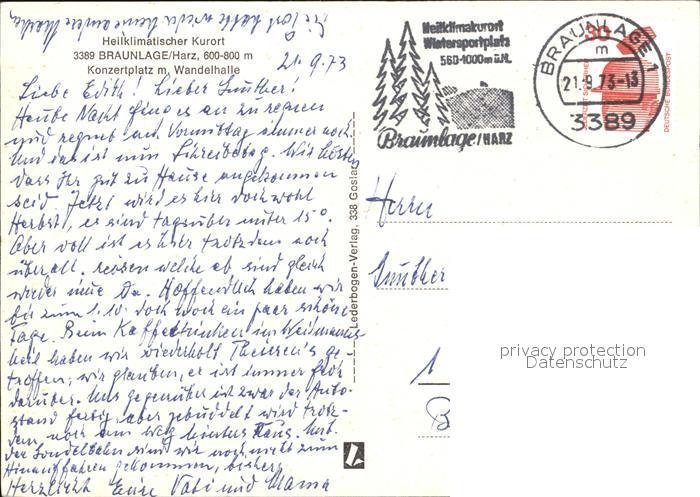 Heilklimatischer Kurort
3389 BRAUNLAGE/Harz, 600-800 m
Konzertplatz m. Wandelhalle
21.9.73
Liebe Edith! Lieber Günther!
Heute Nacht fing es an zu regnen
und regnet am Vormittag immer noch.
Und das ist nun Schreibetag. Wir hörten
dass Ihr gut zu Hause angekommen
seid. Jetzt wird es hier doch wohl
Herbst, es sind tagsüber unter 15°.
Aber voll ist es hier trotzdem noch
überall. reisen welche ab sind gleich
wieder neue da. Hoffentlich haben wir
bis zum 1.10. doch noch ein paar schöne
Tage. Beim Kaffeetrinken im
haben wir wiederholt ge-
troffen, wir glauben, er ist immer froh
darüber. Uns gegenüber ist zwar der Auto-
stand fertig, aber gebuddelt wird trotz-
dem noch am Weg hinters Haus. Mit
der Gondelbahn sind wir noch nicht zum
Hinauffahren gekommen, bisher
Herzlichst Eure Vati und Mama
Lederbogen-Verlag, 338 Goslar
Heilklimakurort
Wintersportplatz
560-1000m ü.M.
Braunlage/HARZ
BRAUNLAGE 1
m
21.-9.73-13
3389
30
DEUTSCHE BUNDESPOST
Herrn
Günther
1
B
privacy protection
Datenschutz